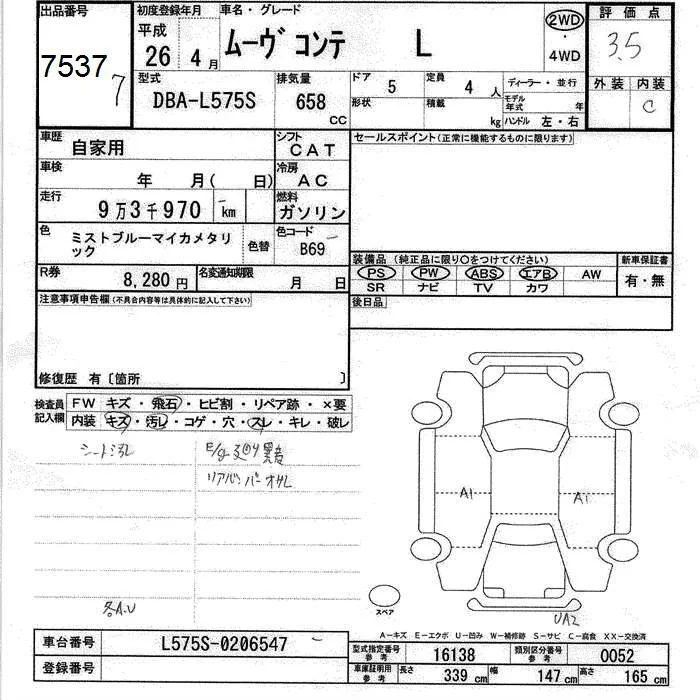 出品番号
7537
7
初度登録年月
平成
26 4月
車名・グレード
ムーヴ コンテ L
2WD
・
4WD
評価点
3.5
外装 内装
C
型式
DBA-L575S
排気量
658
CC
ドア 5
定員 4人
形状
積載 kg
ディーラー・並行
モデル年式 年
ハンドル 左・右
車歴
自家用
シフト
CAT
セールスポイント(正常に機能するものに限ります)
車検
年 月( 日)
冷房
AC
走行
9万3千970 km
燃料
ガソリン
色
ミストブルーマイカメタリ
ック
色替
色コード
B69
装備品 (純正品に限り○をつけてください)
新車保証書
PS PW ABS エアB AW
有・無
SR ナビ TV カワ
R券
8,280円
名変通知期限
月 日
後日品
注意事項申告欄(不具合内容等は具体的に記入して下さい)
修復歴 有〔箇所 〕
検査員
記入欄
FW キズ・飛石・ヒビ割・リペア跡・×要
内装 キズ・汚レ・コゲ・穴・スレ・キレ・破レ
シート汚レ
リアバンパーオサレ
各A.U
A1
A1
UA2
スペア
A-キズ E-エクボ U-凹み W-補修跡 S-サビ C-腐食 XX-交換済
車台番号
L575S-0206547
登録番号
型式指定番号
参考
16138
類別区分番号
参考
0052
車庫証明用
参考
長さ 339cm
幅 147cm
高さ 165cm